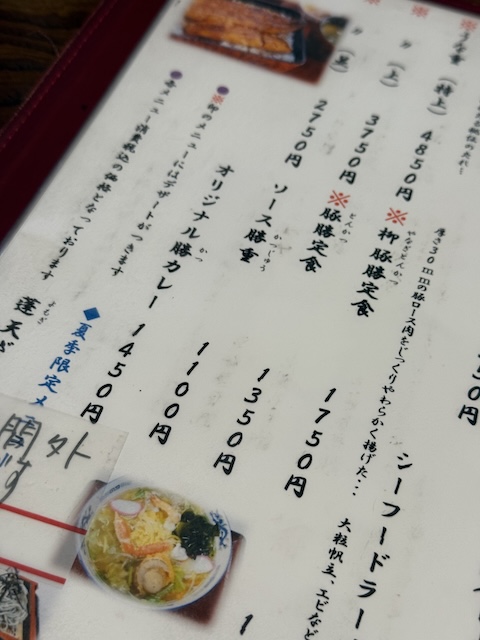 うな重 (特上) 4850円
〃 (上) 3750円
〃 2750円
厚さ30mmの豚ロース肉をじっくりやわらかく揚げた…
※柳豚勝定食 1750円
やなぎとんかつ
※豚勝定食 1350円
とんかつ
ソース勝重 1100円
かつじゅう
オリジナル勝カレー 1450円
かつ
●※印のメニューにはデザートがつきます
●各メニュー消費税込の価格となっております
◆夏季限定
蓬天ざ
よもぎ
シーフードラー
大粒帆立、エビなど
50円
1